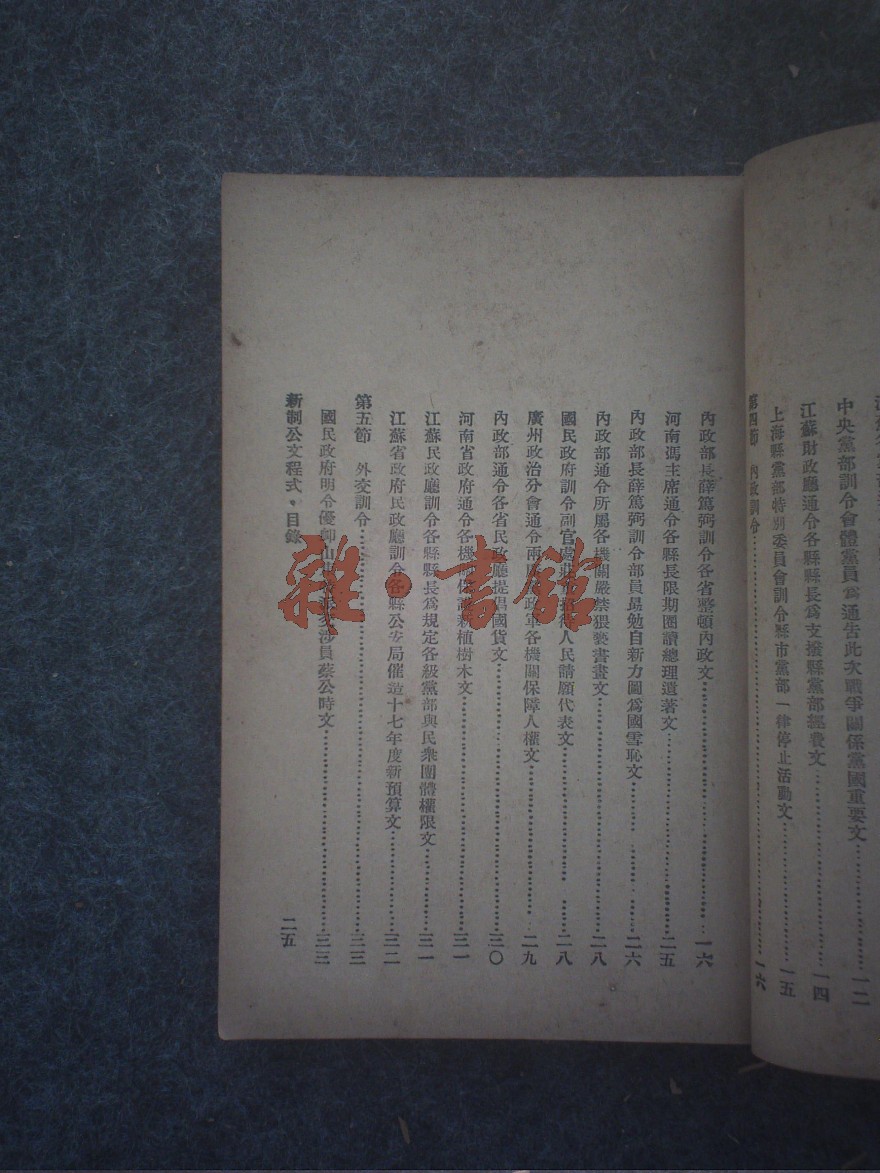 中央黨部訓令會體黨員爲通告此次戰爭關係黨國重要文 一二
江蘇財政廳通令各縣縣長爲支撥縣黨部經費文 一四
上海縣黨部特別委員會訓令縣市黨部一律停止活動文 一五
第四節 內政訓令 一六
內政部長薛篤弼訓令各省整頓內政文 一六
河南馮主席通令各縣長限期圈讀總理遺著文 二五
內政部長薛篤弼訓令部員勗勉自新力圖爲國雪恥文 二六
內政部通令所屬各機關嚴禁猥褻書畫文 二八
國民政府訓令副官處 人民請願代表文 二八
廣州政治分會通令兩 政軍各機關保障人權文 二九
內政部通令各省民政廳提倡國貨文 三〇
河南省政府通令各機關保護新植樹木文 三一
江蘇民政廳訓令各縣縣長爲規定各級黨部與民衆團體權限文 三一
江蘇省政府民政廳訓令各縣公安局催造十七年度新預算文 三二
第五節 外交訓令 三三
國民政府明令優卹山東 交涉員蔡公時文 三三
新制公文程式・目錄 二五
雜・書館